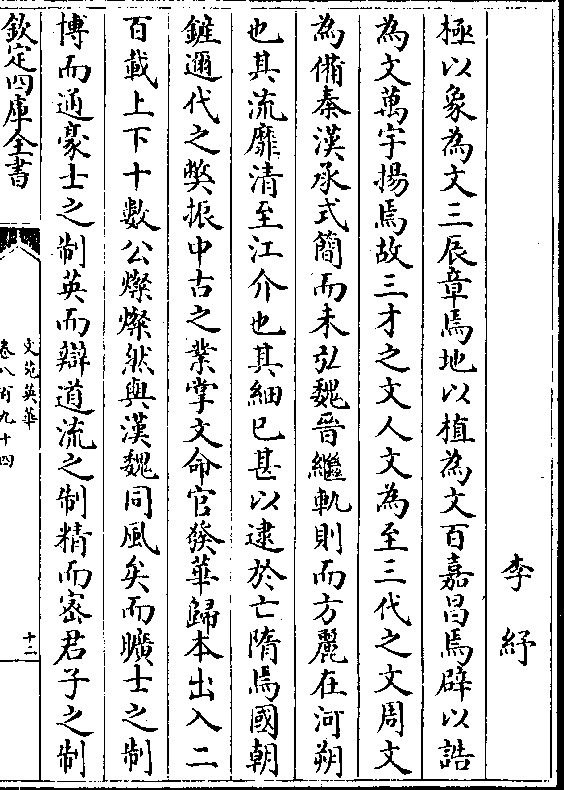 李紓
極以象為文三辰章焉地以植為文百嘉昌焉辟以誥
為文萬宇揚焉故三才之文人文為至三代之文周文
為備秦漢承式簡而未弘魏晉繼軌則而方麗在河朔
也其流靡清至江介也其細已甚以逮於亡隋焉國朝
鏟邇代之獘振中古之業掌文命官發華歸本出入二
百載上下十數公燦燦然與漢魏同風矣而曠士之制
博而通豪士之制英而辯道流之制精而密君子之制
欽定四庫全書
文苑英華
卷八百九十四
十二